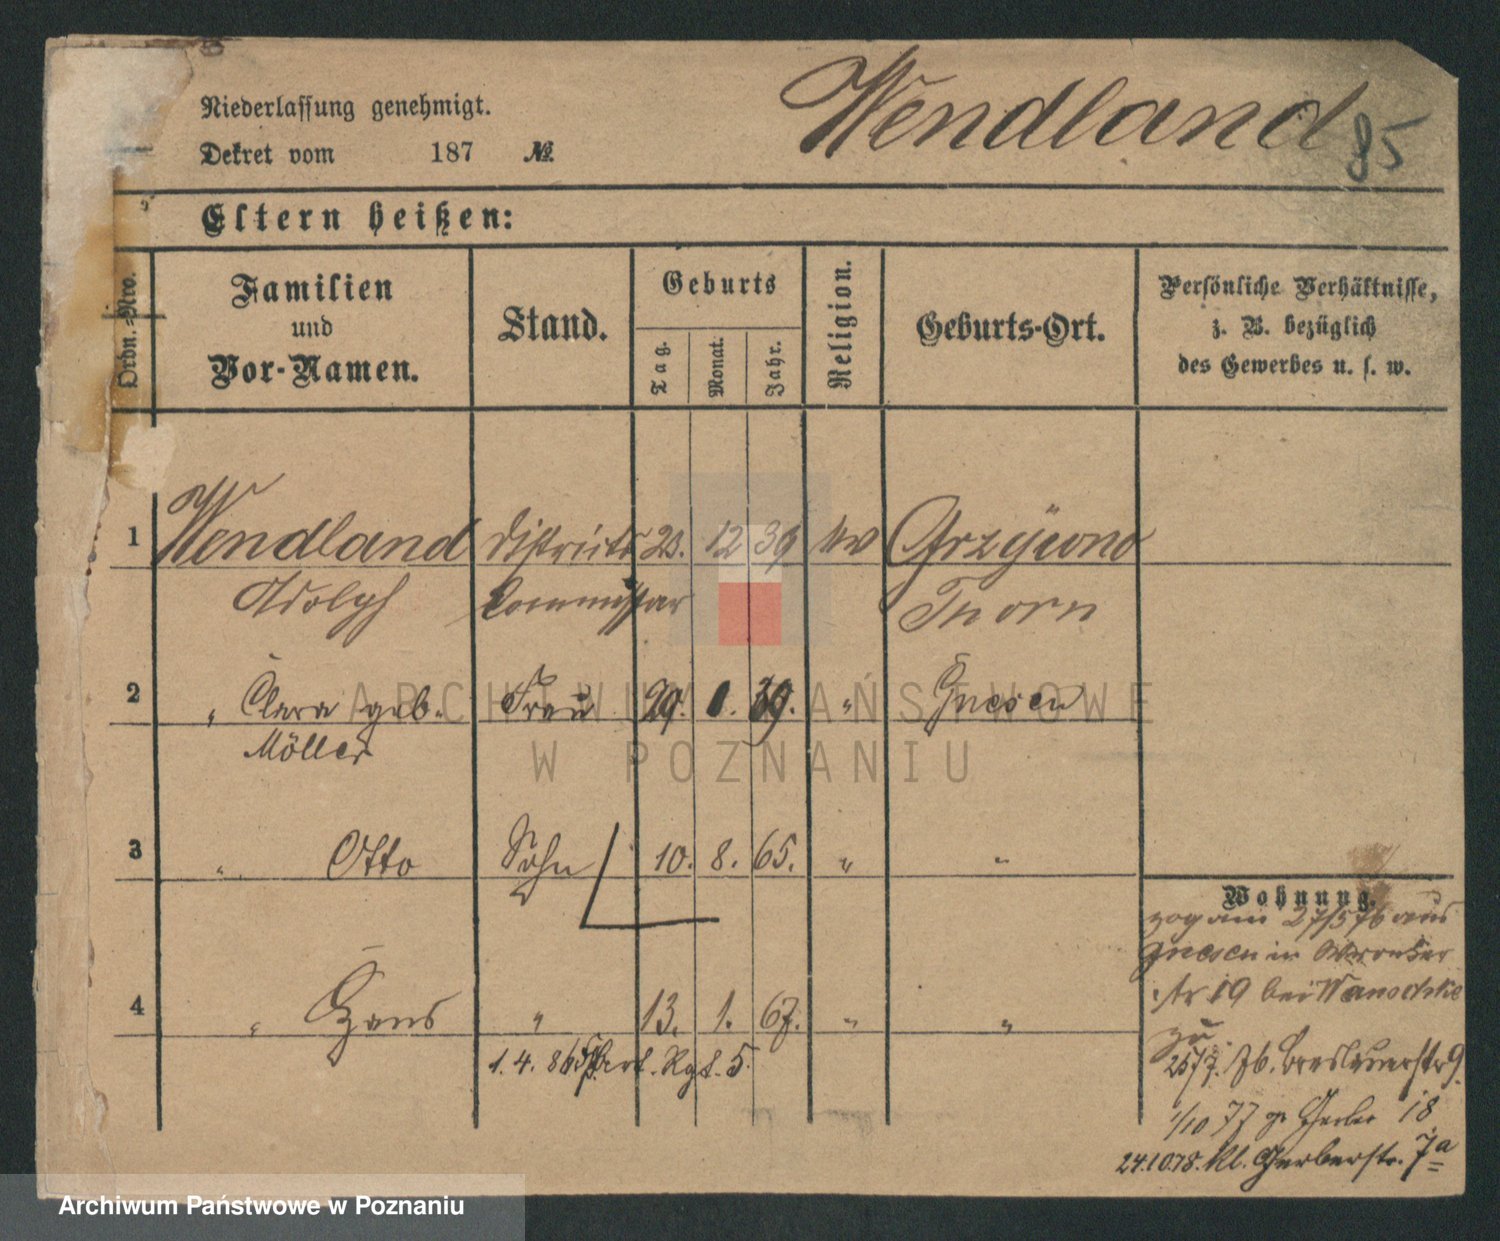 Wendland 85
Niederlassung genehmigt.
Dekret vom 187 №
Eltern heißen:
Ordn.-Nro.
Familien
und
Vor-Namen.
Stand.
Geburts
Tag.
Monat.
Jahr.
Religion.
Geburts-Ort.
Persönliche Verhältnisse,
z. B. bezüglich
des Gewerbes u. s. w.
1 Wendland Districts 23. 12 39 Grzywno
Adolph Commissar Thorn
2 " Clara geb. Frau 29. 1. 39. " Gnesen
Möller
3 " Otto Sohn 10. 8. 65. " "
4 " Hans " 13. 1. 67. " "
1. 4. 86 Art. Rgt. 5.
Wohnung.
zog am 27/5 76 aus
Gnesen in Wronker
str 19 bei
zu
25/7 7. Breslauerstr 9.
1/10 77 gr Gerber 18
24.10.78. kl. Gerberstr. 7a
ARCHIWUM PAŃSTWOWE
W POZNANIU
Archiwum Państwowe w Poznaniu